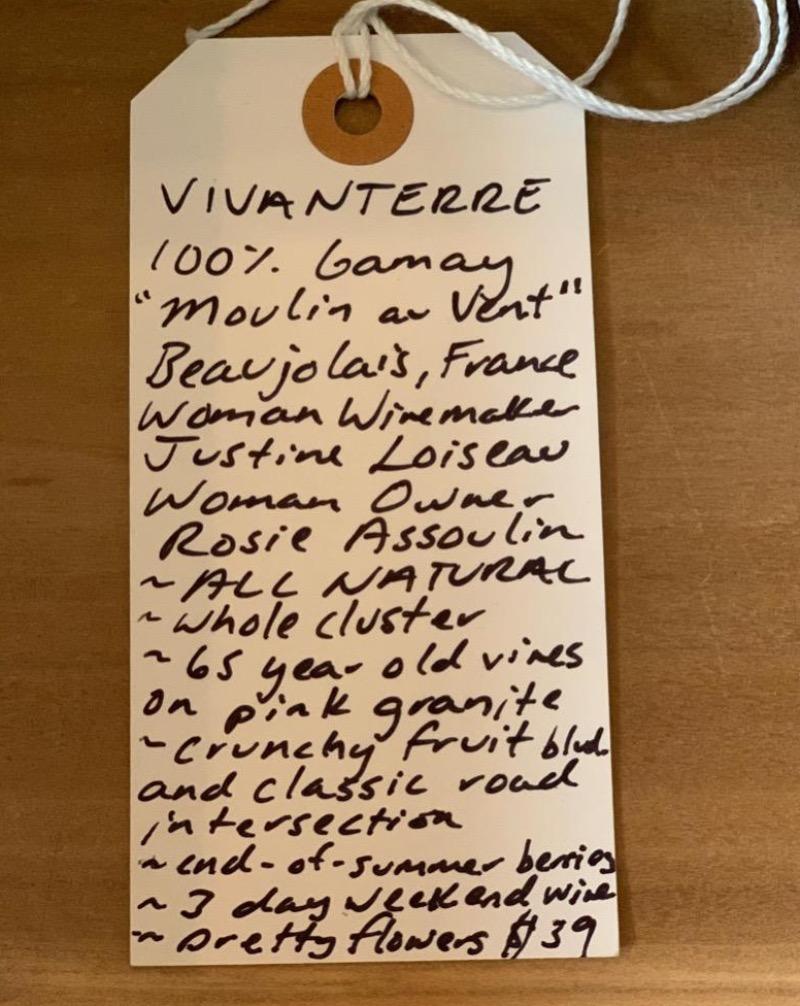 VIVANTERRE
100% Gamay
"Moulin au Vent"
Beaujolais, France
Woman Winemaker
Justine Loiseau
Woman Owner
Rosie Assoulin
~ ALL NATURAL
~ whole cluster
~ 65 year old vines
on pink granite
~ crunchy fruit blvd.
and classic road
intersection
~ end-of-summer berries
~ 3 day weekend wine
~ pretty flowers $39